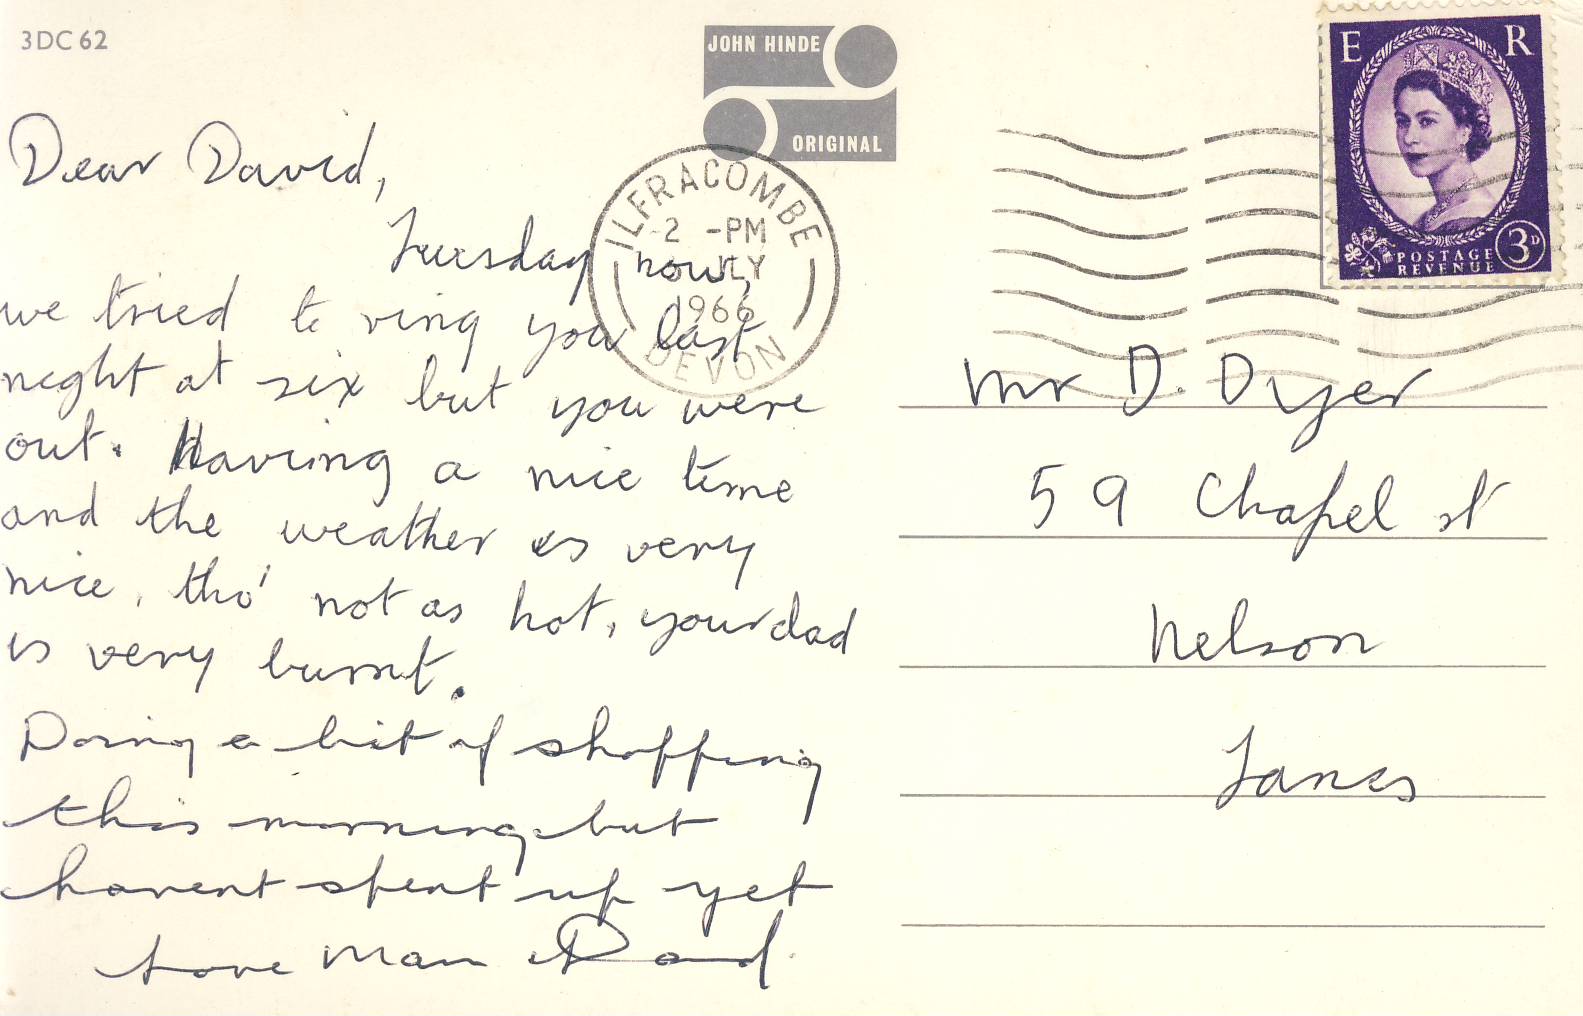 3DC 62
JOHN HINDE
ORIGINAL
E R
POSTAGE
REVENUE
3D
ILFRACOMBE
2 -PM
JLY
1966
DEVON
Dear David,
Tuesday now,
we tried to ring you last
night at six but you were
out. Having a nice time
and the weather is very
nice, tho' not as hot, your dad
is very burnt.
Doing a bit of shopping
this morning but
havent spent up yet
Love Mam & Dad.
Mr D. Dyer
59 Chapel st
Nelson
Lancs